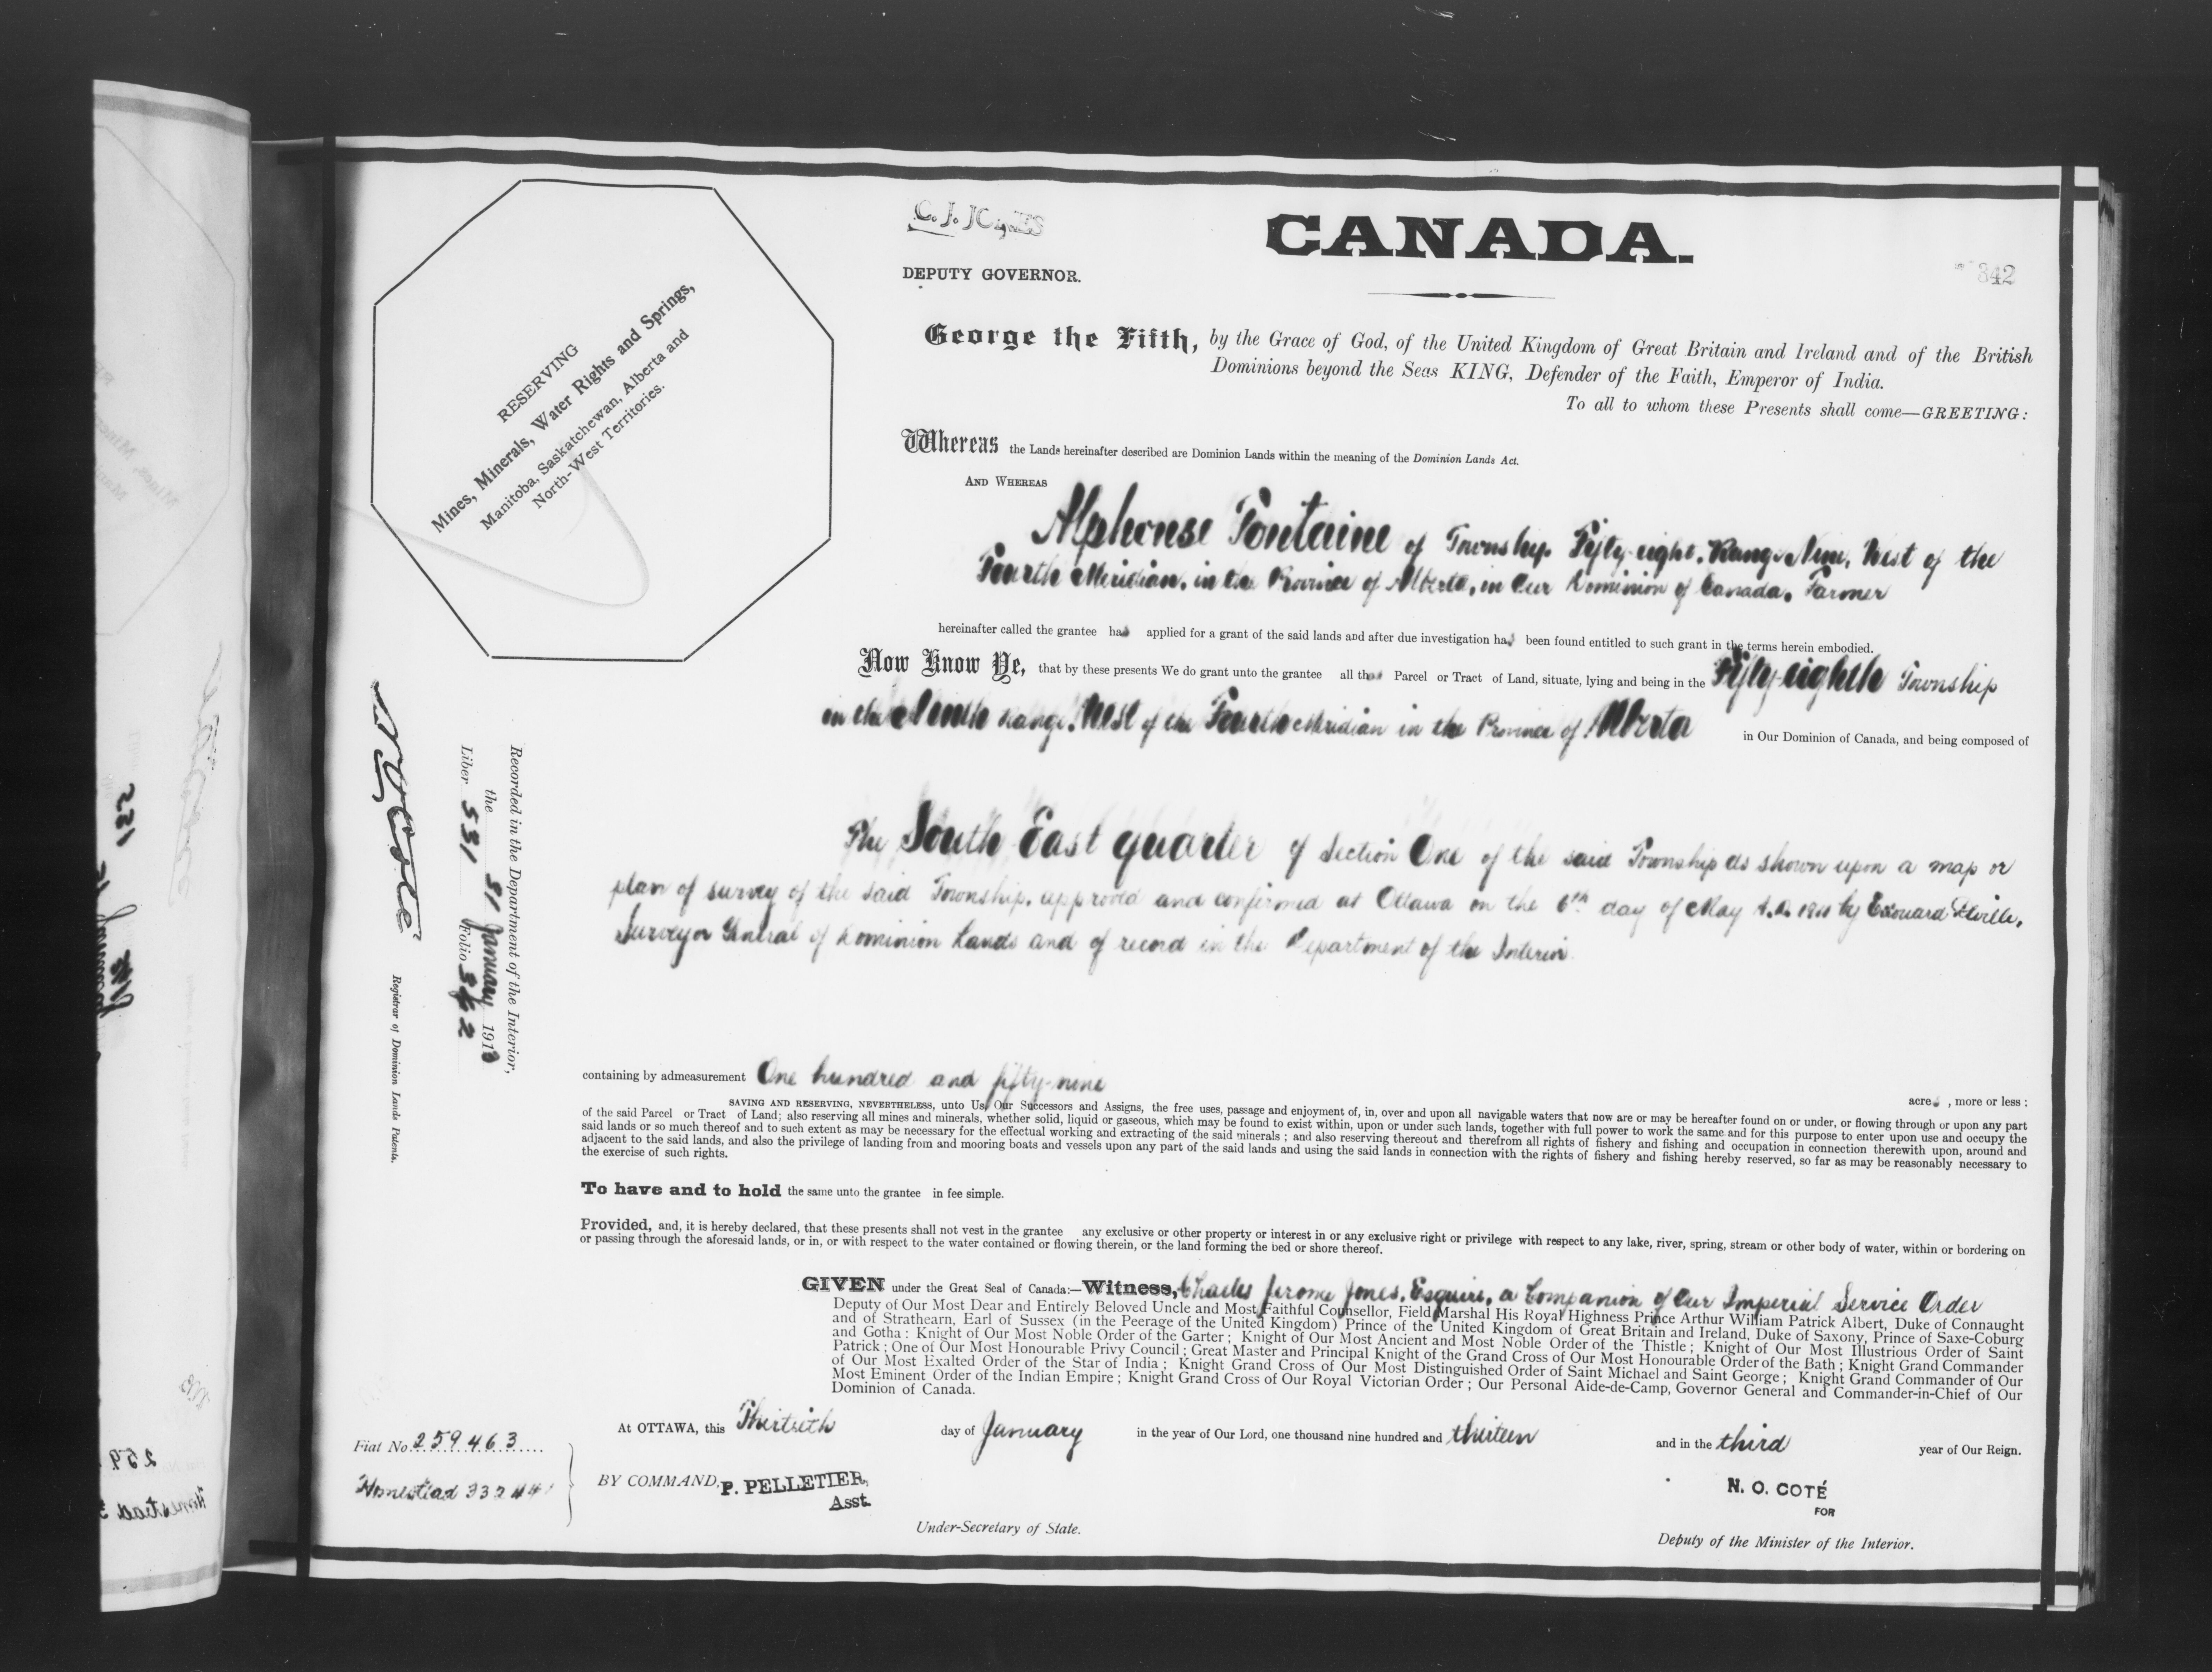 C. J. JONES
DEPUTY GOVERNOR.
CANADA.
342
RESERVING
Mines, Minerals, Water Rights and Springs,
Manitoba, Saskatchewan, Alberta and
North-West Territories.
George the Fifth, by the Grace of God, of the United Kingdom of Great Britain and Ireland and of the British
Dominions beyond the Seas KING, Defender of the Faith, Emperor of India.
To all to whom these Presents shall come—GREETING:
Whereas the Lands hereinafter described are Dominion Lands within the meaning of the Dominion Lands Act.
AND WHEREAS
Alphonse Fontaine of Township Fifty-eight, Range Nine, West of the
Fourth Meridian, in the Province of Alberta, in Our Dominion of Canada, Farmer
hereinafter called the grantee has applied for a grant of the said lands and after due investigation has been found entitled to such grant in the terms herein embodied.
Now Know Ye, that by these presents We do grant unto the grantee all that Parcel or Tract of Land, situate, lying and being in the Fifty-eighth Township
in the Ninth Range, West of the Fourth Meridian in the Province of Alberta in Our Dominion of Canada, and being composed of
The South East quarter of Section One of the said Township as shown upon a map or
plan of survey of the said Township, approved and confirmed at Ottawa on the 6th day of May A.D. by Edouard Deville,
Surveyor General of Dominion Lands and of record in the Department of the Interior.
containing by admeasurement One hundred and fifty-nine acres, more or less:
SAVING AND RESERVING, NEVERTHELESS, unto Us, Our Successors and Assigns, the free uses, passage and enjoyment of, in, over and upon all navigable waters that now are or may be hereafter found on or under, or flowing through or upon any part
of the said Parcel or Tract of Land; also reserving all mines and minerals, whether solid, liquid or gaseous, which may be found to exist within, upon or under such lands, together with full power to work the same and for this purpose to enter upon use and occupy the
said lands or so much thereof and to such extent as may be necessary for the effectual working and extracting of the said minerals; and also reserving thereout and therefrom all rights of fishery and fishing and occupation in connection therewith upon, around and
adjacent to the said lands, and also the privilege of landing from and mooring boats and vessels upon any part of the said lands and using the said lands in connection with the rights of fishery and fishing hereby reserved, so far as may be reasonably necessary to
the exercise of such rights.
To have and to hold the same unto the grantee in fee simple.
Provided, and, it is hereby declared, that these presents shall not vest in the grantee any exclusive or other property or interest in or any exclusive right or privilege with respect to any lake, river, spring, stream or other body of water, within or bordering on
or passing through the aforesaid lands, or in, or with respect to the water contained or flowing therein, or the land forming the bed or shore thereof.
GIVEN under the Great Seal of Canada:—Witness, Charles Jerome Jones, Esquire, a Companion of Our Imperial Service Order
Deputy of Our Most Dear and Entirely Beloved Uncle and Most Faithful Counsellor, Field Marshal His Royal Highness Prince Arthur William Patrick Albert, Duke of Connaught
and of Strathearn, Earl of Sussex (in the Peerage of the United Kingdom) Prince of the United Kingdom of Great Britain and Ireland, Duke of Saxony, Prince of Saxe-Coburg
and Gotha: Knight of Our Most Noble Order of the Garter; Knight of Our Most Ancient and Most Noble Order of the Thistle; Knight of Our Most Illustrious Order of Saint
Patrick; One of Our Most Honourable Privy Council; Great Master and Principal Knight of the Grand Cross of Our Most Honourable Order of the Bath; Knight Grand Commander
of Our Most Exalted Order of the Star of India; Knight Grand Cross of Our Most Distinguished Order of Saint Michael and Saint George; Knight Grand Commander of Our
Most Eminent Order of the Indian Empire; Knight Grand Cross of Our Royal Victorian Order; Our Personal Aide-de-Camp, Governor General and Commander-in-Chief of Our
Dominion of Canada.
At OTTAWA, this Thirtieth day of January in the year of Our Lord, one thousand nine hundred and thirteen and in the third year of Our Reign.
BY COMMAND, P. PELLETIER,
Asst.
Under-Secretary of State.
N. O. COTÉ
FOR
Deputy of the Minister of the Interior.
Recorded in the Department of the Interior,
the 31 January 1913
Liber 531 Folio 342
N O Coté
Registrar of Dominion Lands Patents.
Fiat No. 259463
Homestead